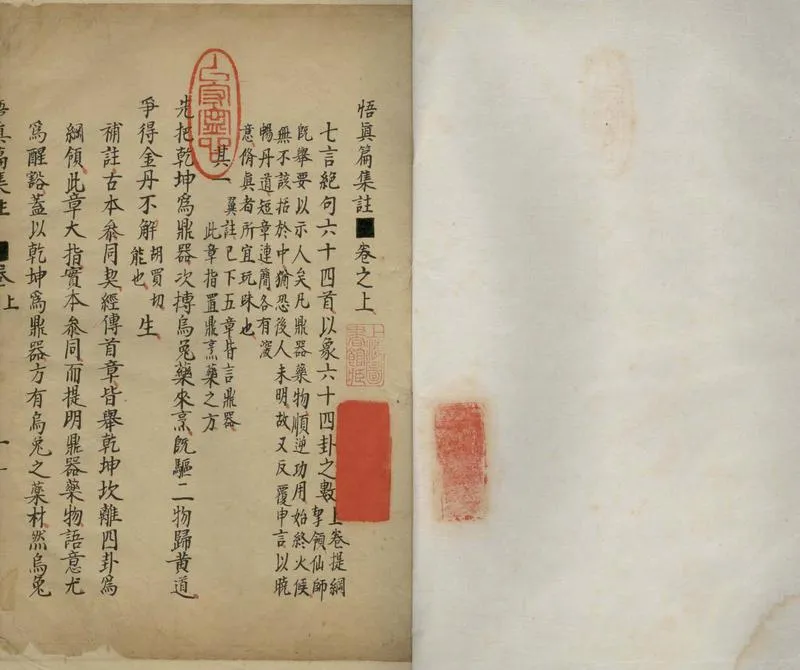 悟眞篇集註 卷之上
七言絕句六十四首以象六十四卦之數
上卷提綱
挈領仙師
既舉要以示人矣凡鼎器藥物順逆功用始終火候
無不該括於中猶恐後人未明故又反覆申言以曉
暢丹道短章連簡各有深
意脩眞者所宜玩味也
其一
翼註已下五章皆言鼎器
此章指置鼎烹藥之方
先把乾坤爲鼎器次搏烏兔藥來烹既驅二物歸黃道
爭得金丹不解胡買切能也生
補註古本叅同契經傳首章皆舉乾坤坎離四卦爲
綱領此章大指實本叅同而提明鼎器藥物語意尤
爲醒豁蓋以乾坤爲鼎器方有烏兔之藥材然烏兔
悟眞篇集註 卷上 一
上海圖書館藏